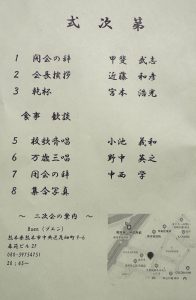 式次第
1 開会の辞 甲斐 武志
2 会長挨拶 近藤 和彦
3 乾杯 宮本 浩光
食事 歓談
5 校歌斉唱 小池 義和
6 万歳三唱 野中 英之
7 閉会の辞 中西 学
8 集合写真
～ 二次会の案内 ～
Buen (ブエン)
熊本県熊本市中央区花畑町
ビル2F
20:45～